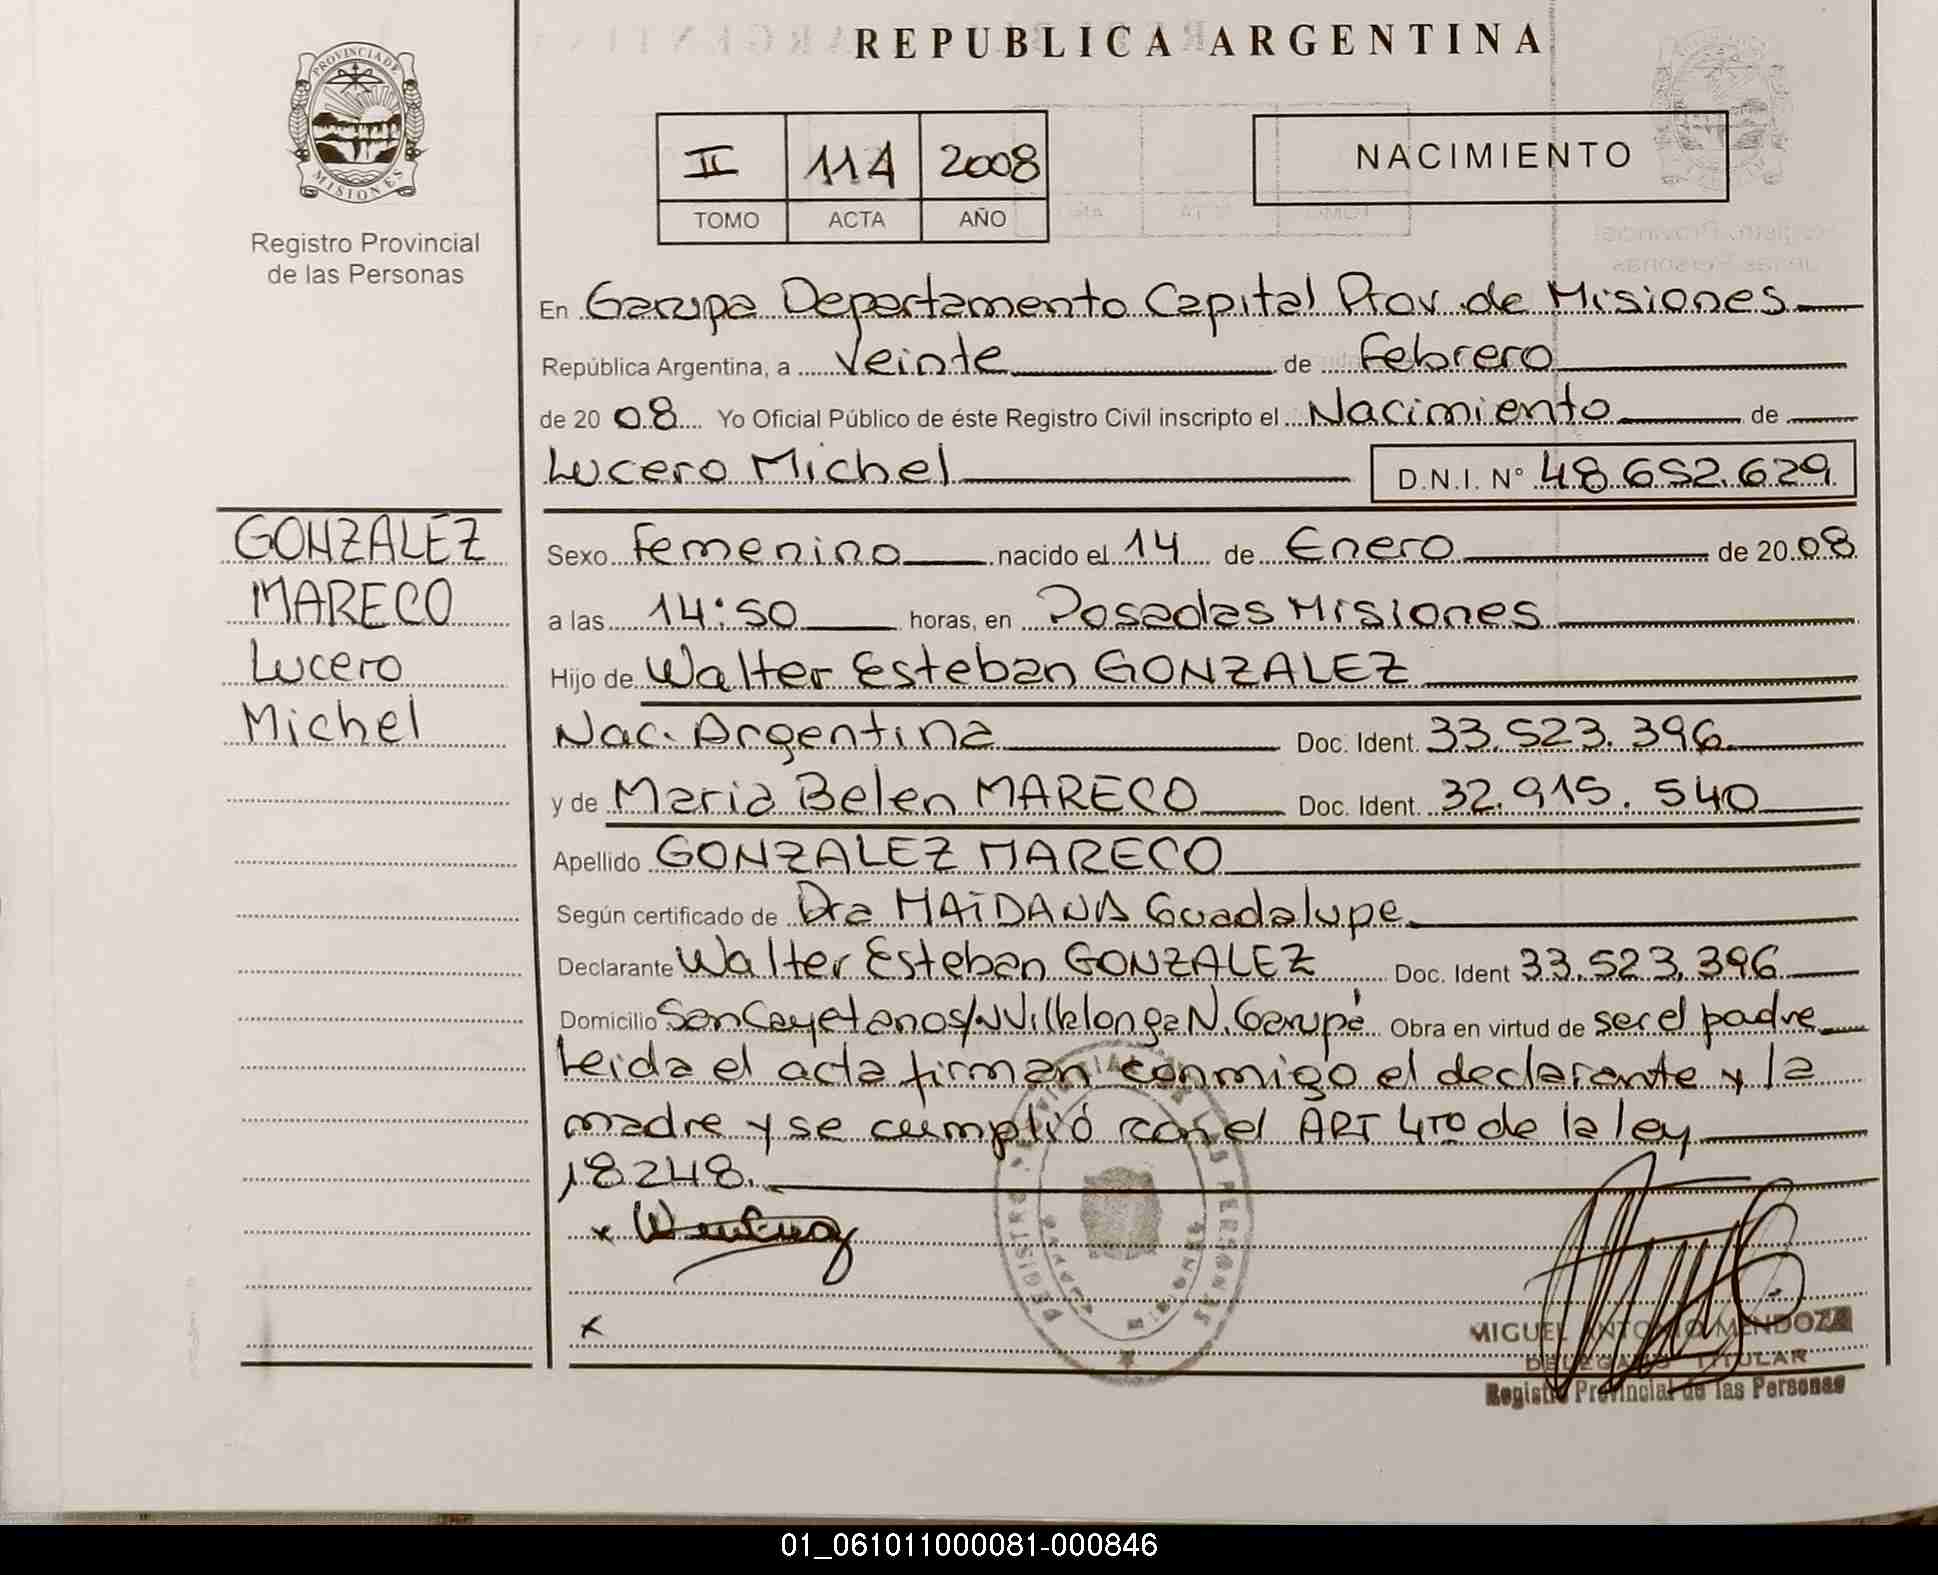 REPUBLICA ARGENTINA
PROVINCIA DE MISIONES
Registro Provincial
de las Personas
II 114 2008
TOMO ACTA AÑO
NACIMIENTO
En Garupa Departamento Capital Prov. de Misiones
República Argentina, a Veinte de Febrero
de 20 08 Yo Oficial Público de éste Registro Civil inscripto el Nacimiento de
Lucero Michel D.N.I. N° 48.652.629
GONZALEZ
MARECO
Lucero
Michel
Sexo Femenino nacido el 14 de Enero de 20 08
a las 14:50 horas, en Posadas Misiones
Hijo de Walter Esteban GONZALEZ
Nac. Argentina Doc. Ident. 33.523.396
y de Maria Belen MARECO Doc. Ident. 32.915.540
Apellido GONZALEZ MARECO
Según certificado de Dra MAIDANA Guadalupe
Declarante Walter Esteban GONZALEZ Doc. Ident 33.523.396
Domicilio San Cayetano S/N Villalonga N. Garupá Obra en virtud de ser el padre
Leida el acta firman conmigo el declarante y la
madre y se cumplió con el ART 4TO de la ley
18248.
x
x
REGISTRO PROVINCIAL DE LAS PERSONAS
MIGUEL ANTONIO MENDOZA
DELEGADO TITULAR
Registro Provincial de las Personas
01_061011000081-000846